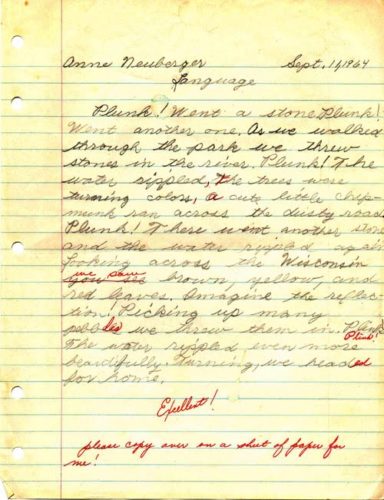 Anne Neuberger Sept. 11, 1964
Language
Plunk! Went a stone. Plunk!
Went another one. As we walked
through the park we threw
stones in the river. Plunk! The
water rippled, The trees were
turning colors, a cute little chip-
munk ran across the dusty road
Plunk! There went another stone
and the water rippled again
Looking across the Wisconsin
we saw
you see brown, yellow, and
red leaves. Imagine the reflec-
tion! Picking up many
pebbles we threw them in. Plunk
Plunk!
The water rippled even more
beautifully. Turning, we headed
for home.
Excellent!
please copy over on a sheet of paper for
me!